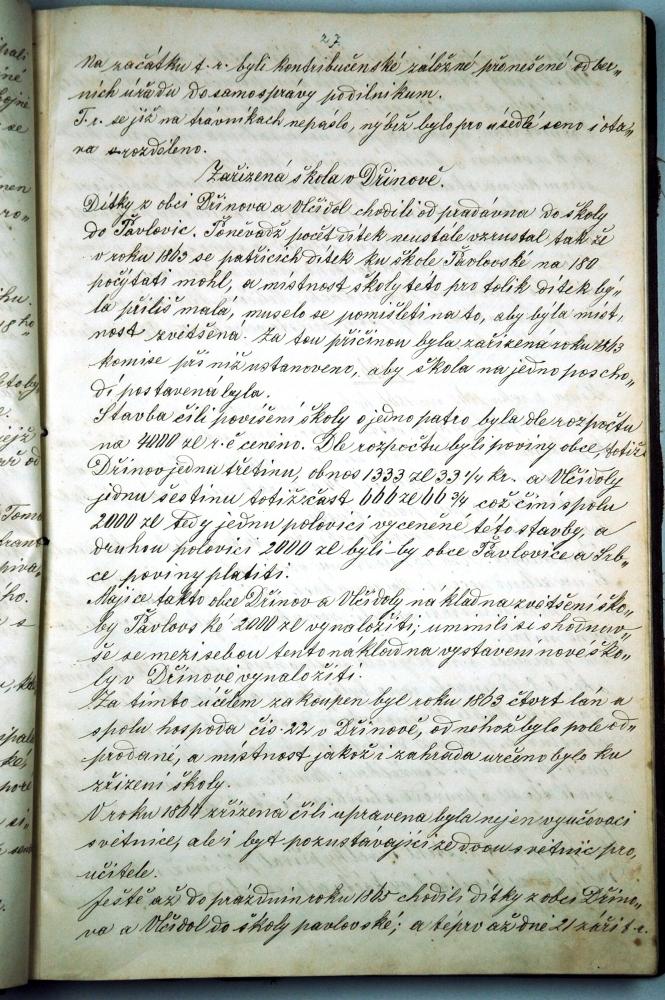 27
Na začátku t. r. byli kontribučenské záložné přenešené od ber„
ních úřadu do samospravy podilníkum.
T. r. se již na trávníkach nepáslo, nýbrž bylo pro usedlé seno i ota„
va rozděleno.
Zařízená škola v Dřinově.
Dítky z obci Dřinova a Vlčidol chodili od pradávna do školy
do Pavlovic. Poněvadž počet dítek neustále vzrustal tak že
v roku 1863 se patřících dítek ku škole Pavlovské na 180
počýtati mohl, a místnost školy této pro tolik dítek bý„
la příliš malá, muselo se pomišleti na to, aby byla míst„
nost zvětšená. Za tou příčinou byla zařízená roku 1863
komise při níž ustanoveno, aby škola na jedno poscho„
dí postavená byla.
Stavba čili povišení školy o jedno patro byla dle rozpočtu
na 4000 zl r. č ceněno. Dle rozpočtu byli poviny obce, totiž:
Dřinov jednu třetinu, obnos 1333 zl 33 1/4 kr. a Vlčidoly
jednu šestinu totiž část 666 zl 66 3/4 což činí spolu
2000 zl tedy jednu polovici vyceněné této stavby, a
druhou polovici 2000 zl byli-by obce Pavlovice a Srb„
ce poviny platiti.
Majíce takto obce Dřinov a Vlčidoly náklad na zvětšení ško„
ly Pavlovské 2000 zl vynaložiti; umínili si shodnuv„
še se mezi sebou tento naklad na vystavení nové ško„
ly v Dřinově vynaložiti.
Za tímto účelem zakoupen byl roku 1863 čtvrt lán a
spolu hospoda čis. 22 v Dřinově, od něhož bylo pole od„
prodané, a místnost jakož i zahrada určeno bylo ku
zřízení školy.
V roku 1864 zřízená čili upravena byla nejen vyučovací
světnice, ale i byt pozustávající ze dvou světnic pro„
učitele.
Ještě až do prázdnin roku 1865 chodili dítky z obci Dřino„
va a Vlčidol do školy pavlovské; a tépro až dne 21 září t. r.